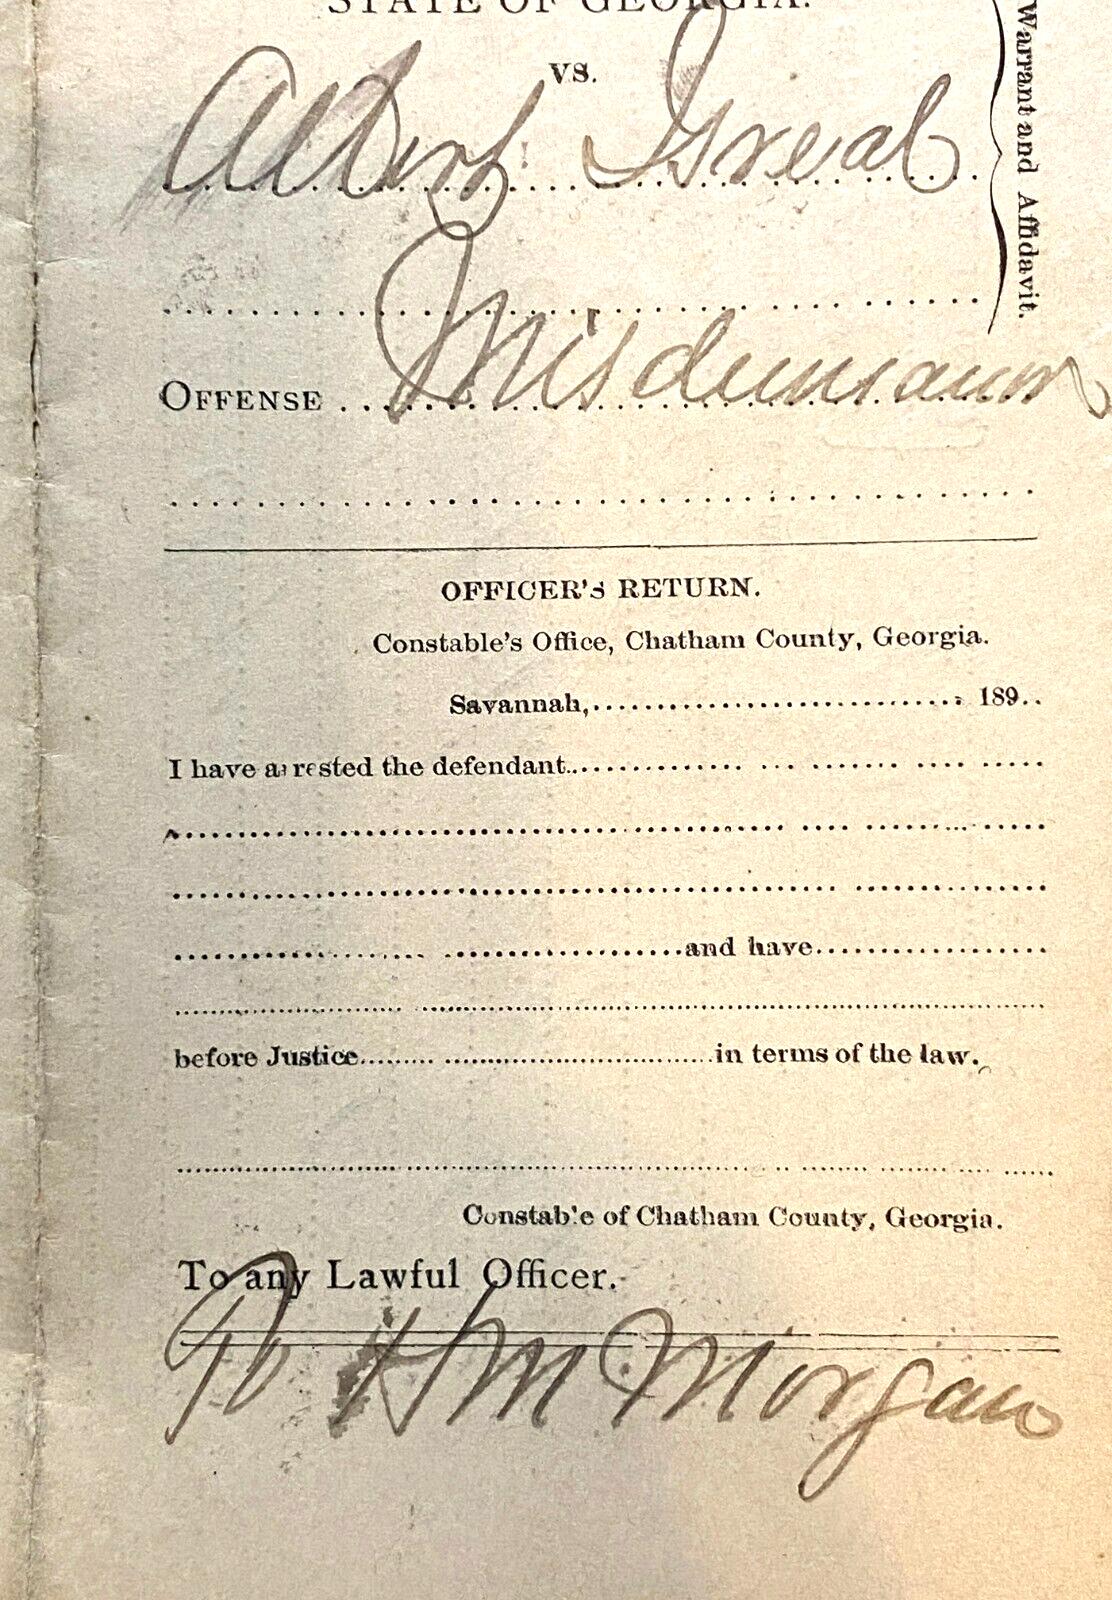 STATE OF GEORGIA.
vs.
Albert
Warrant and Affidavit.
OFFENSE Misdemeanor
OFFICER'S RETURN.
Constable's Office, Chatham County, Georgia.
Savannah, 189
I have arrested the defendant
and have
before Justice in terms of the law.
Constable of Chatham County, Georgia.
To any Lawful Officer.
To H M Morgan